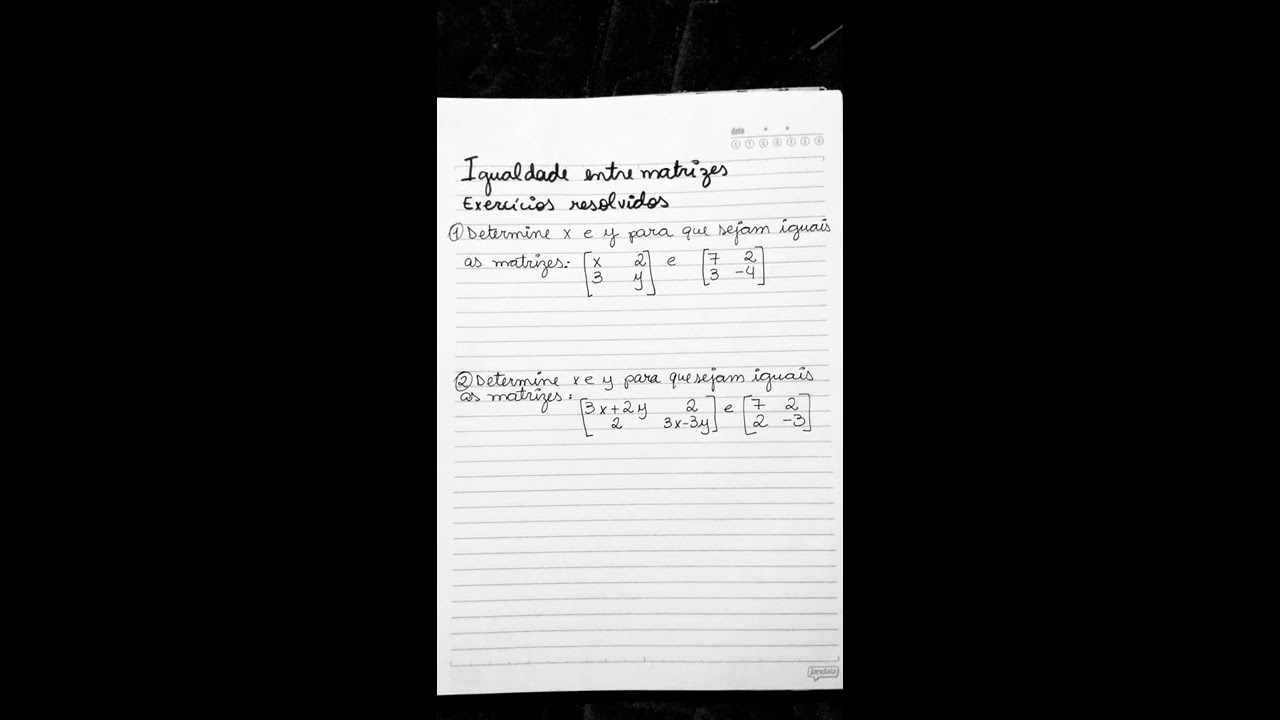 data
Igualdade entre matrizes
Exercícios resolvidos
① Determine x e y para que sejam iguais
as matrizes: [x 2 e [7 2]
3 y] 3 -4]
② Determine x e y para que sejam iguais
as matrizes:
[3x+2y 2] e [7 2]
2 3x-3y] 2 -3]
jandaia